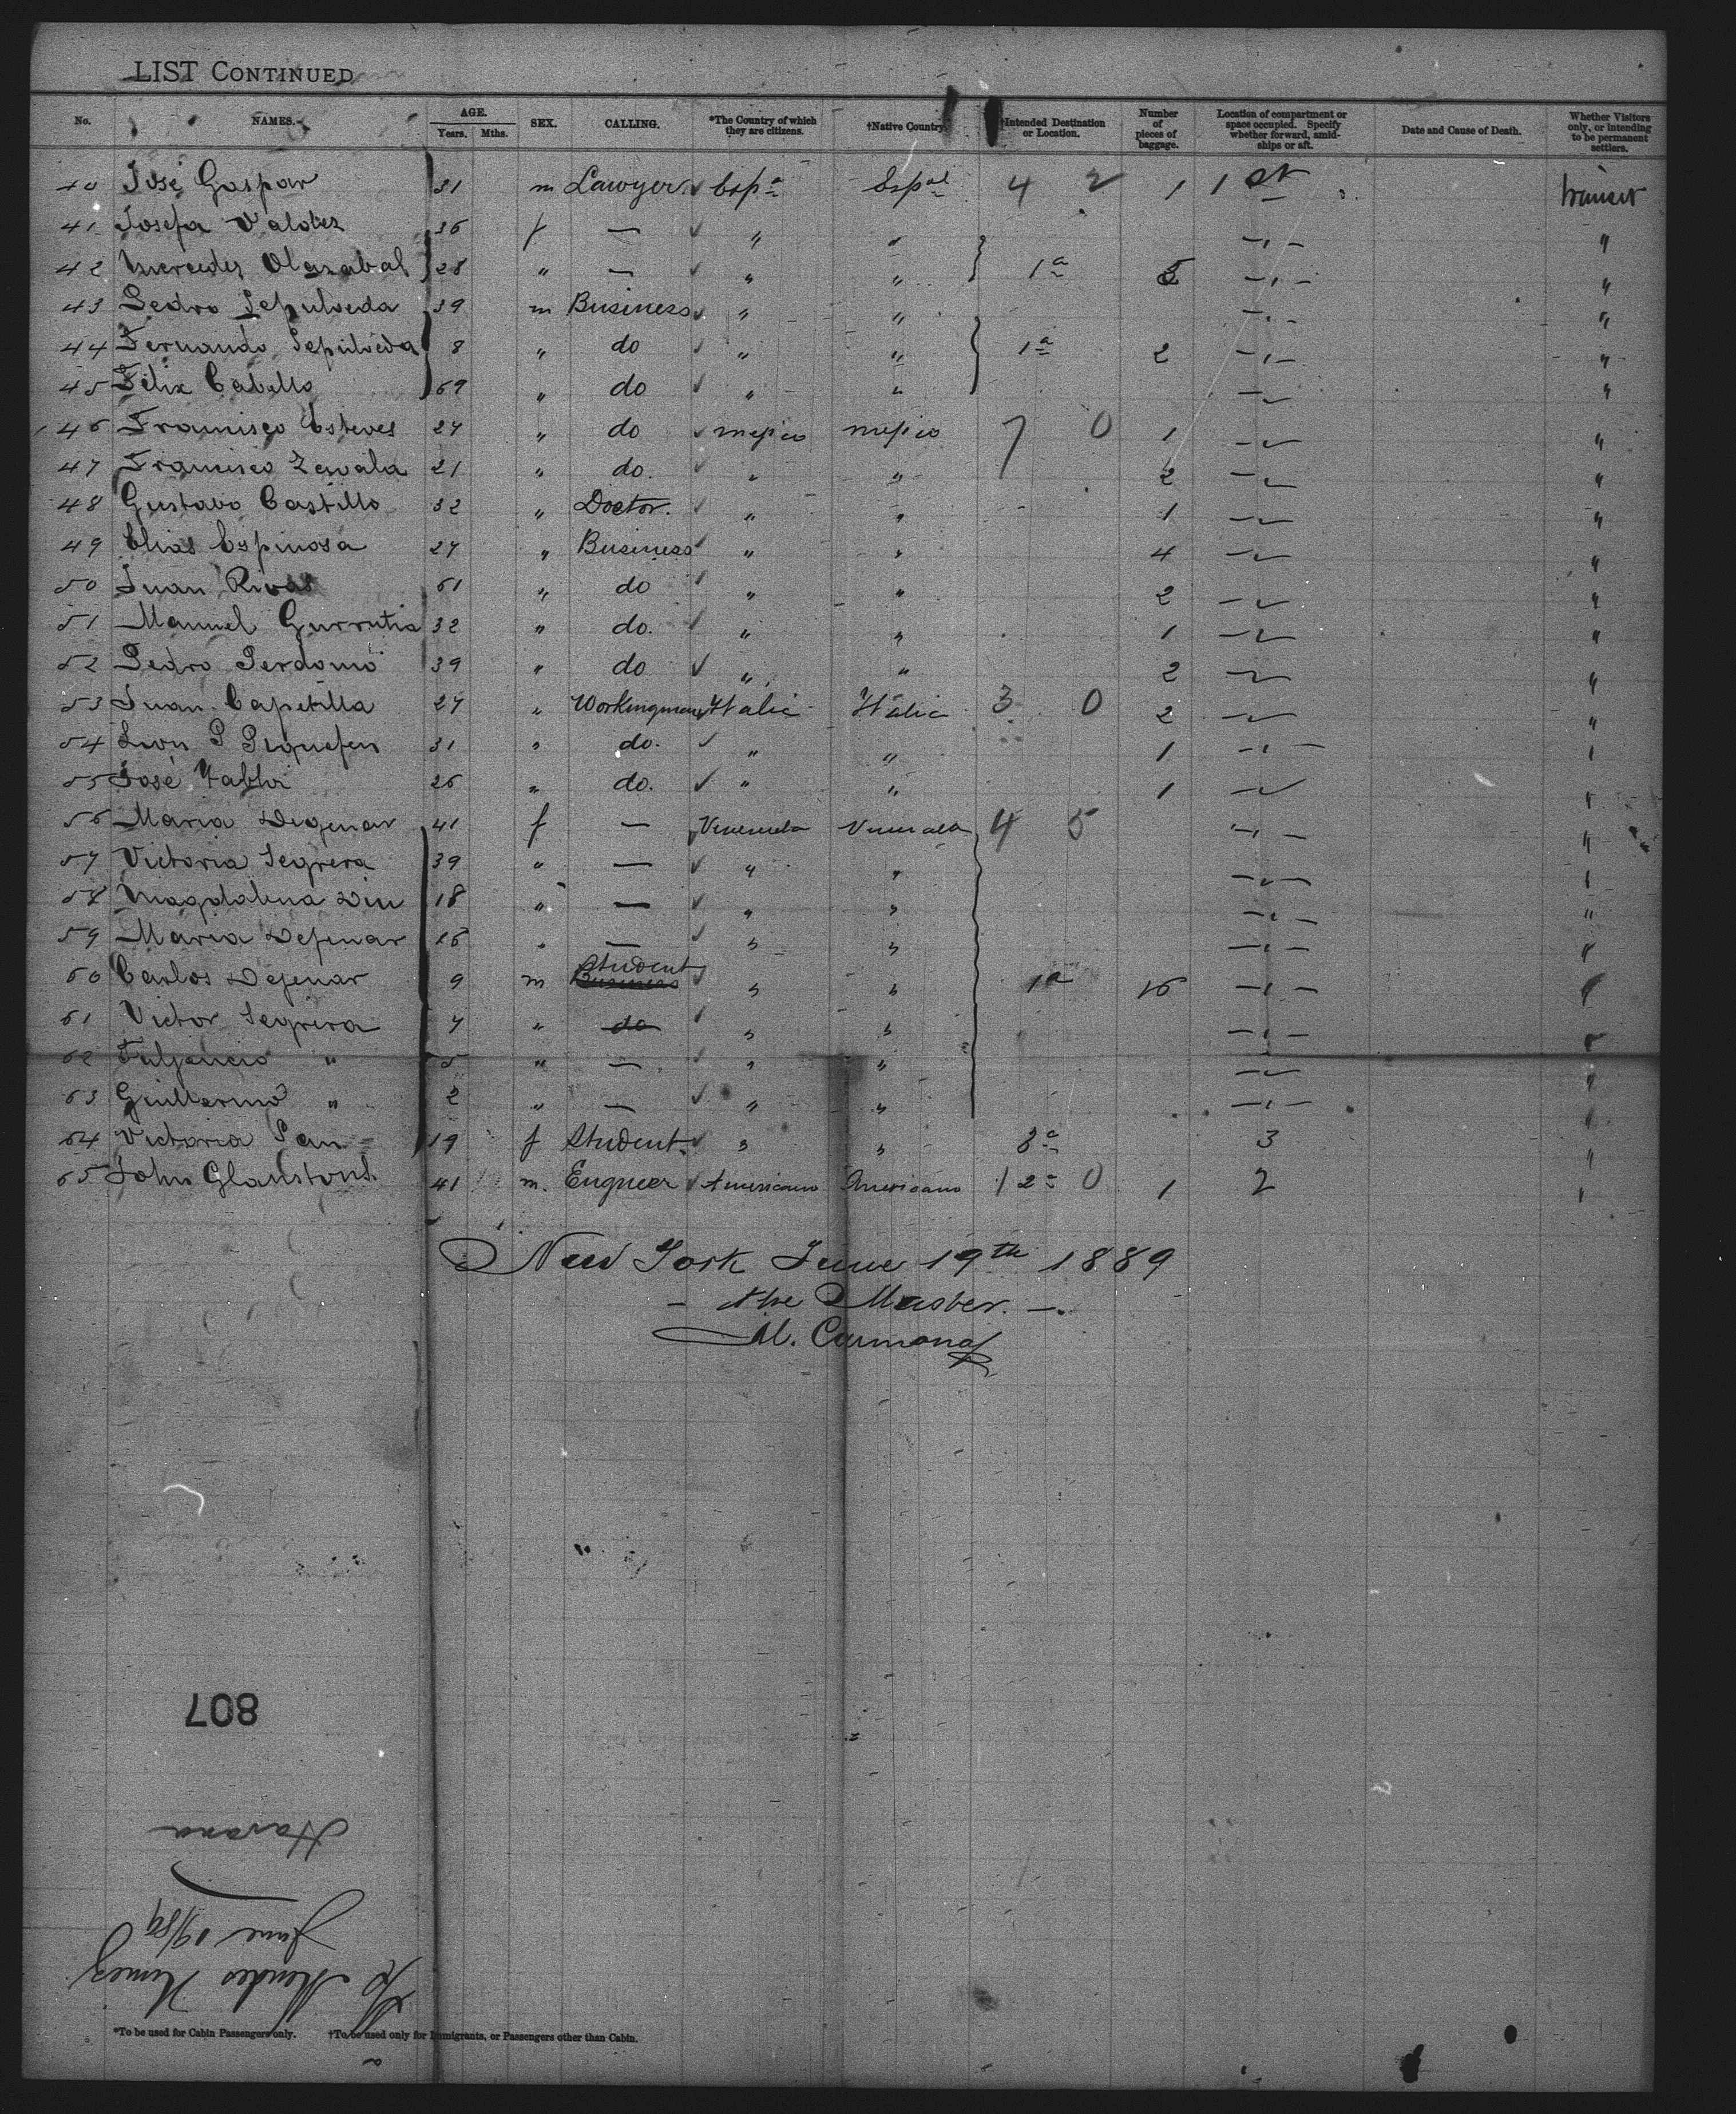 LIST CONTINUED
No. NAMES. AGE. Years. Mths. SEX. CALLING. *The Country of which they are citizens. †Native Country. †Intended Destination or Location. Number of pieces of baggage. Location of compartment or space occupied. Specify whether forward, amidships or aft. Date and Cause of Death. Whether Visitors only, or intending to be permanent settlers.
40 José Gaspar 31 m Lawyer. ✓ Espª Espal 4 2 1 1 st transit
41 Josefa Valdez 36 f — ✓ " " -"- "
42 Mercedes Olazabal 28 " — ✓ " " 1ª 5 -"- "
43 Pedro Sepulveda 39 m Business ✓ " " -"- "
44 Fernando Sepulveda 8 " do ✓ " " 1ª 2 -"- "
45 Félix Cabello 69 " do ✓ " " -"- "
46 Francisco Esteves 27 " do ✓ mejico mejico 7 0 1 -"- "
47 Francisco Zavala 21 " do. ✓ " " 2 -"- "
48 Gustavo Castillo 32 " Doctor. ✓ " " 1 -"- "
49 Elias Espinosa 27 " Business ✓ " " 4 -"- "
50 Juan Rivas 61 " do ✓ " " 2 -"- "
51 Manuel Gurrutia 32 " do. ✓ " " 1 -"- "
52 Pedro Perdomo 39 " do ✓ " " 2 -"- "
53 Juan Capetilla 27 " Workingman ✓ Italia Italia 3 0 2 -"- "
54 31 " do. ✓ " " 1 -"- "
55 José 26 " do. ✓ " " 1 -"- "
56 Maria 41 f — Venezuela Venezuela 4 5 -"- "
57 Victoria Segrera 39 " — ✓ " " -"- "
58 Magdalena 18 " — ✓ " " -"- "
59 Maria Dejenar 16 " — ✓ " " -"- "
60 Carlos Dejenar 9 m Student Business ✓ " " 1ª 16 -"- "
61 Victor Segrera 7 " do ✓ " " -"- "
62 Fuljencio " 5 " — ✓ " " -"- "
63 Guillermo " 2 " — ✓ " " -"- "
64 Victoria 19 f Student. ✓ " " 3ª 3 "
65 John Glanstont. 41 m. Engneer ✓ Americano Americano 1 2ª 0 1 2 "
New York June 19th 1889
- the Master. -
M. Carmona
807
Havana
June 19/89
Mendes Nunez
*To be used for Cabin Passengers only. †To be used only for Immigrants, or Passengers other than Cabin.